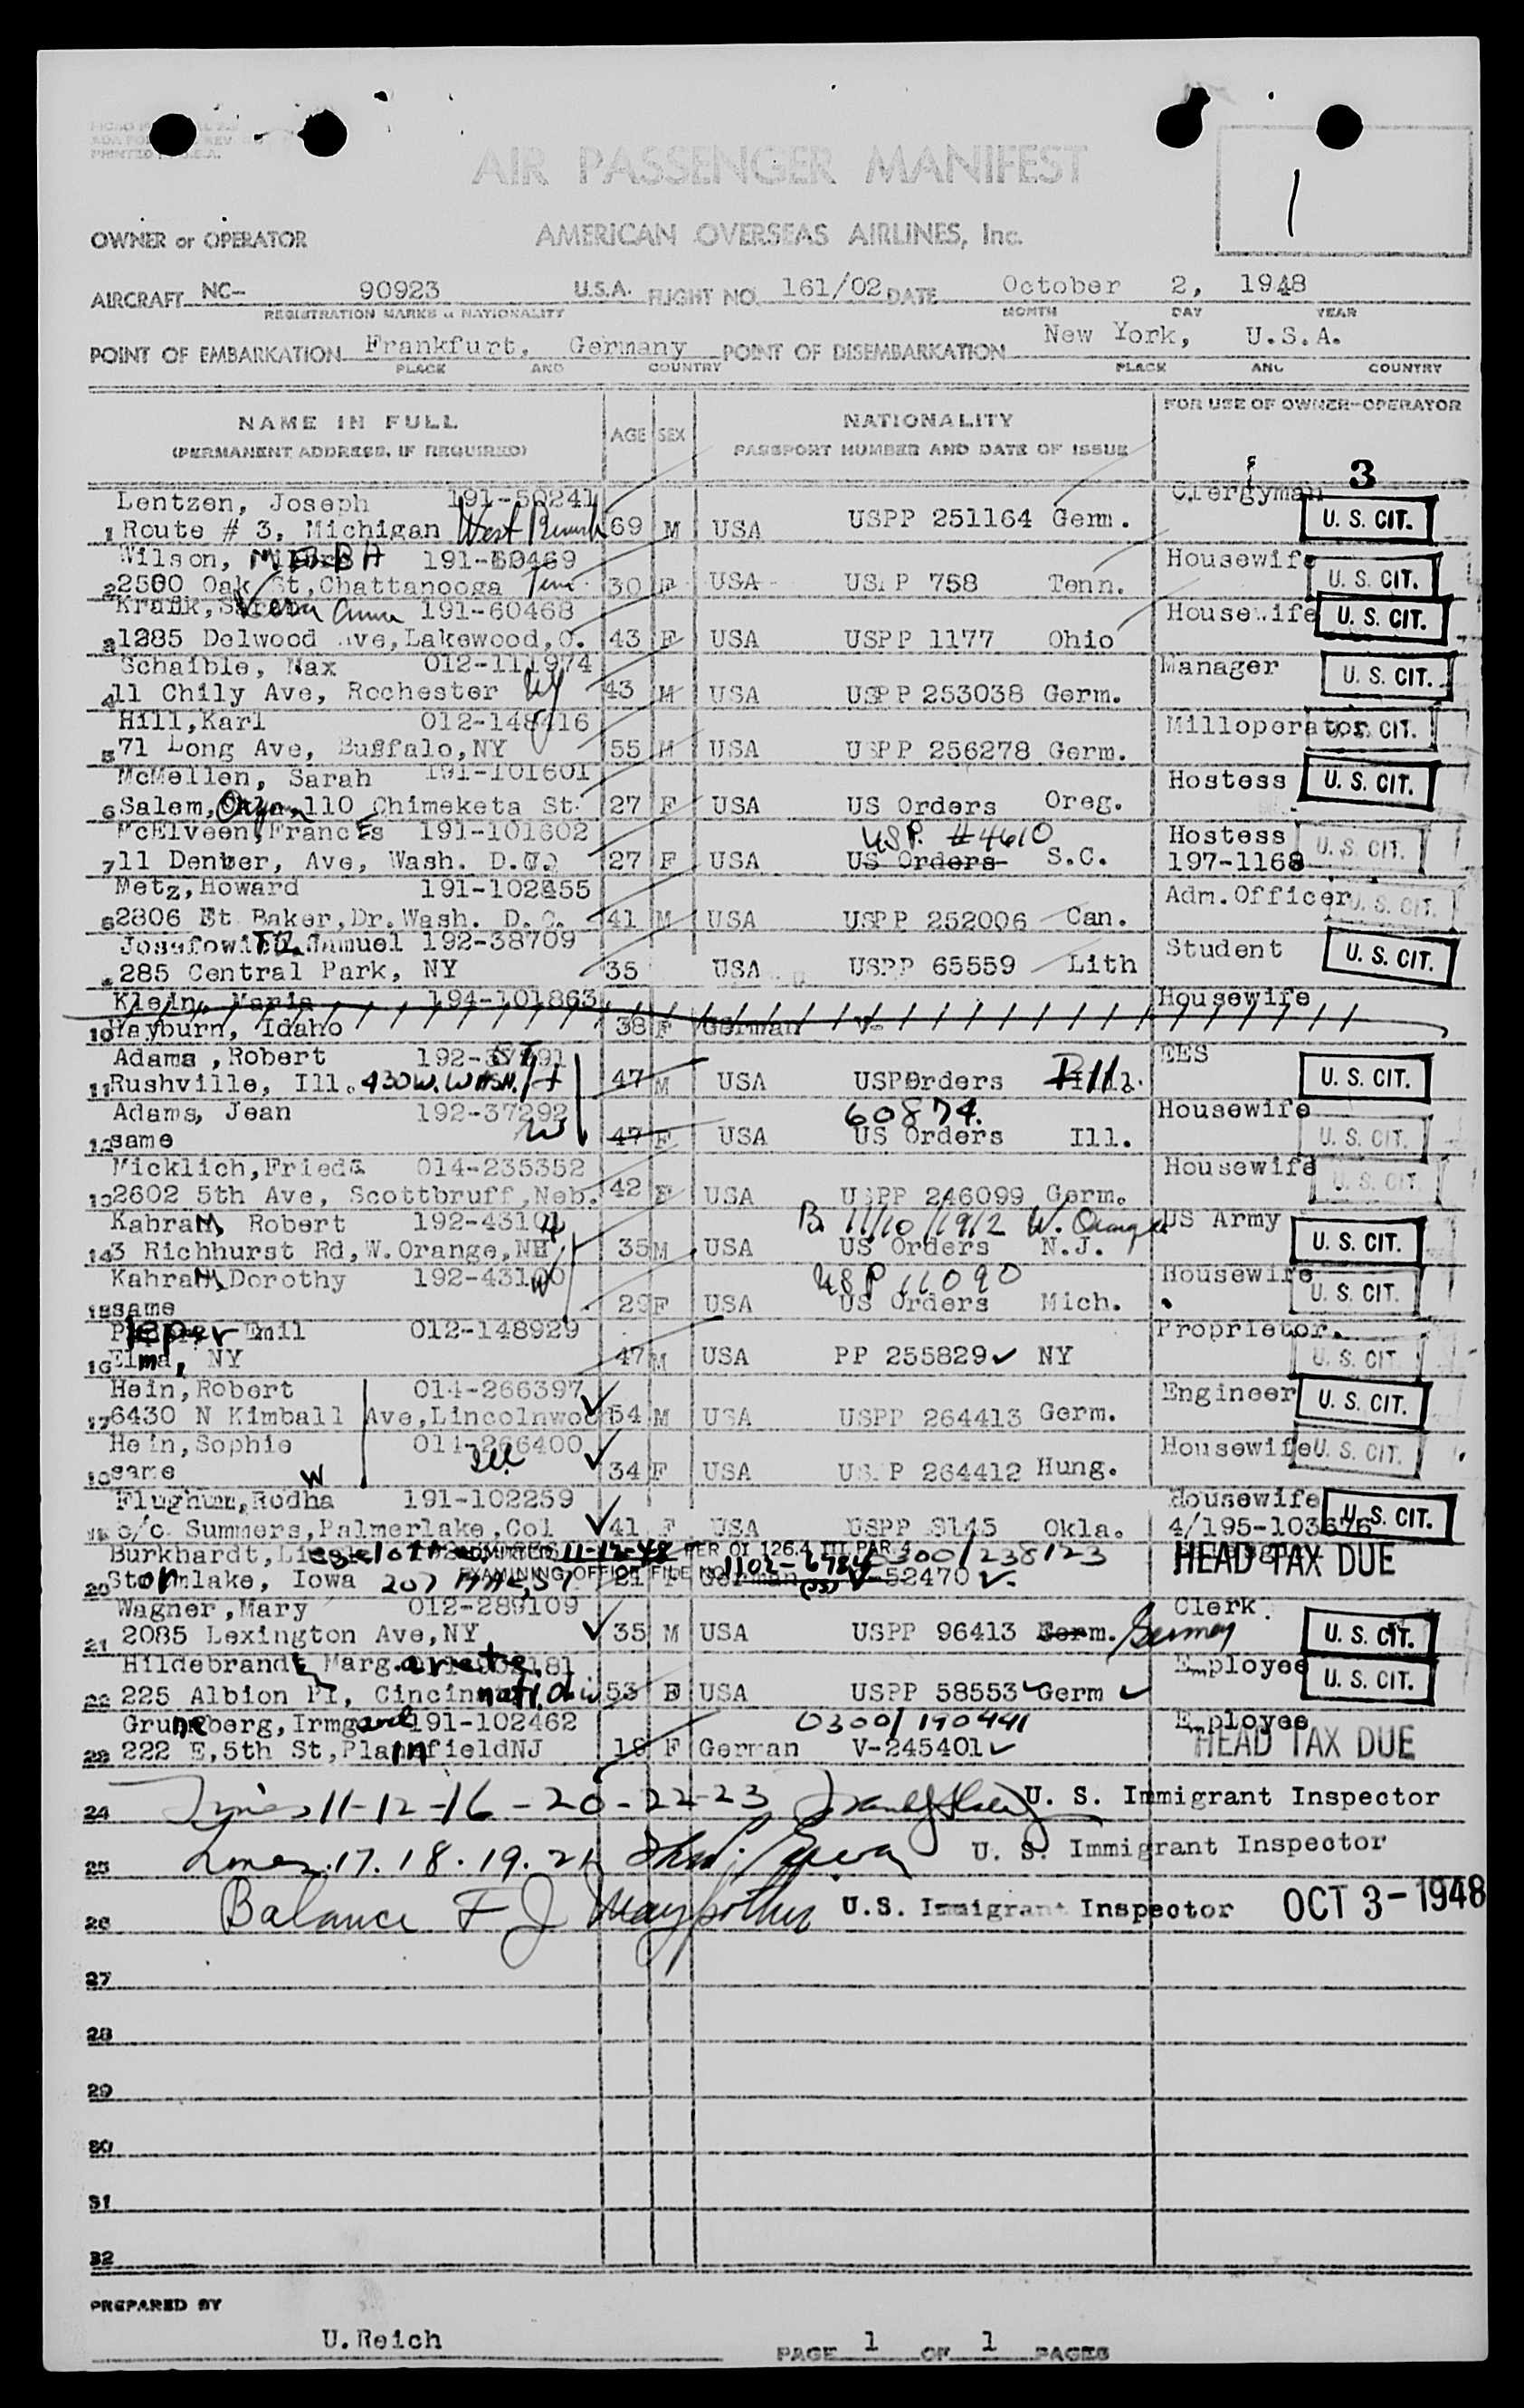 PRINTED U.S.A.
AIR PASSENGER MANIFEST
1
OWNER or OPERATOR AMERICAN OVERSEAS AIRLINES, Inc.
AIRCRAFT NC- 90923 U.S.A. FLIGHT NO. 161/02 DATE October 2, 1948
REGISTRATION MARKS & NATIONALITY MONTH DAY YEAR
POINT OF EMBARKATION Frankfurt, Germany POINT OF DISEMBARKATION New York, U.S.A.
PLACE AND COUNTRY PLACE AND COUNTRY
NAME IN FULL AGE SEX NATIONALITY FOR USE OF OWNER-OPERATOR
(PERMANENT ADDRESS, IF REQUIRED) PASSPORT NUMBER AND DATE OF ISSUE
3
Lentzen, Joseph 191-50241 Clergyman
1 Route # 3, Michigan West Branch 69 M USA USPP 251164 Germ. U. S. CIT.
Wilson, 191-60469 Housewife
2 2500 Oak St, Chattanooga Tenn. 30 F USA US P 758 Tenn. U. S. CIT.
Anna 191-60468 Housewife
3 1285 Delwood Ave, Lakewood, O. 43 F USA USPP 1177 Ohio U. S. CIT.
Schaible, Max 012-111974 Manager
4 11 Chily Ave, Rochester NY 43 M USA USPP 253038 Germ. U. S. CIT.
Hill, Karl 012-148416 Milloperator
5 71 Long Ave, Buffalo, NY 55 M USA USPP 256278 Germ. U. S. CIT.
McMellen, Sarah 191-101601 Hostess
6 Salem, 110 Chimeketa St. 27 F USA US Orders Oreg. U. S. CIT.
McElveen, Frances 191-101602 USP. #4610 Hostess
7 11 Denver, Ave, Wash. D.C. 27 F USA US Orders S.C. 197-1168 U. S. CIT.
Metz, Howard 191-102455 Adm. Officer
8 2806 Mt Baker, Dr. Wash. D. C. 41 M USA USPP 252006 Can. U. S. CIT.
Samuel 192-38709 Student
285 Central Park, NY 35 USA USPP 65559 Lith U. S. CIT.
Klein, Maria 194-101863 Housewife
10 Hayburn, Idaho 38 F German V-
Adams, Robert EES
11 Rushville, Ill. 430 W. WASH. St 47 M USA Orders U. S. CIT.
Adams, Jean 192-37292 60874. Housewife
12 same W 47 F USA US Orders Ill. U. S. CIT.
Micklich, Frieda 014-235352 Housewife
13 2602 5th Ave, Scottbruff, Neb. 42 F USA USPP 246099 Germ. U. S. CIT.
Kahram, Robert B. 11/10/1912 W. Orange US Army
14 3 Richhurst Rd, W. Orange, 35 M USA US Orders N.J. U. S. CIT.
Kahram, Dorothy 192-43100 USP 11090 Housewife
15 same W 29 F USA US Orders Mich. U. S. CIT.
Pieper Emil 012-148929 Proprietor.
16 Elma, NY 47 M USA PP 255829 ✓ NY U. S. CIT.
Hein, Robert 014-266397 ✓ Engineer
17 6430 N Kimball Ave, Lincolnwood 54 M USA USPP 264413 Germ. U. S. CIT.
Hein, Sophie 014-266400 ✓ Housewife
18 same W Ill 34 F USA US P 264412 Hung. U. S. CIT.
Flughum, Rodha 191-102259 Housewife
c/o Summers, Palmerlake, Col ✓ 41 F USA USPP 3145 Okla. 4/195-103676 U. S. CIT.
Burkhardt, ADMITTED 11-12-48 PER OI 126.4 III PAR 4 0300/238123 HEAD TAX DUE
EXAMINING OFFICE FILE NO 1102-6784
20 Stormlake, Iowa 207 21 F German V-52470 ✓
Wagner, Mary 012-289109 Clerk
21 2085 Lexington Ave, NY ✓ 35 M USA USPP 96413 Germ. Germany U. S. CIT.
Hildebrandt, Margarete Employee
22 225 Albion Pl, Cincinnati, Ohio 53 F USA USPP 58553 ✓ Germ ✓ U. S. CIT.
Gruneberg, Irmgard 191-102462 0300/190441 Employee
23 222 E, 5th St, Plainfield NJ 18 F German V-245401 ✓ HEAD TAX DUE
24 Lines 11-12-16-20-22-23 U. S. Immigrant Inspector
25 Lines 17. 18. 19. 21 U. S. Immigrant Inspector
26 Balance F J U.S. Immigrant Inspector OCT 3-1948
27
28
29
30
31
32
PREPARED BY
U. Reich PAGE 1 OF 1 PAGES